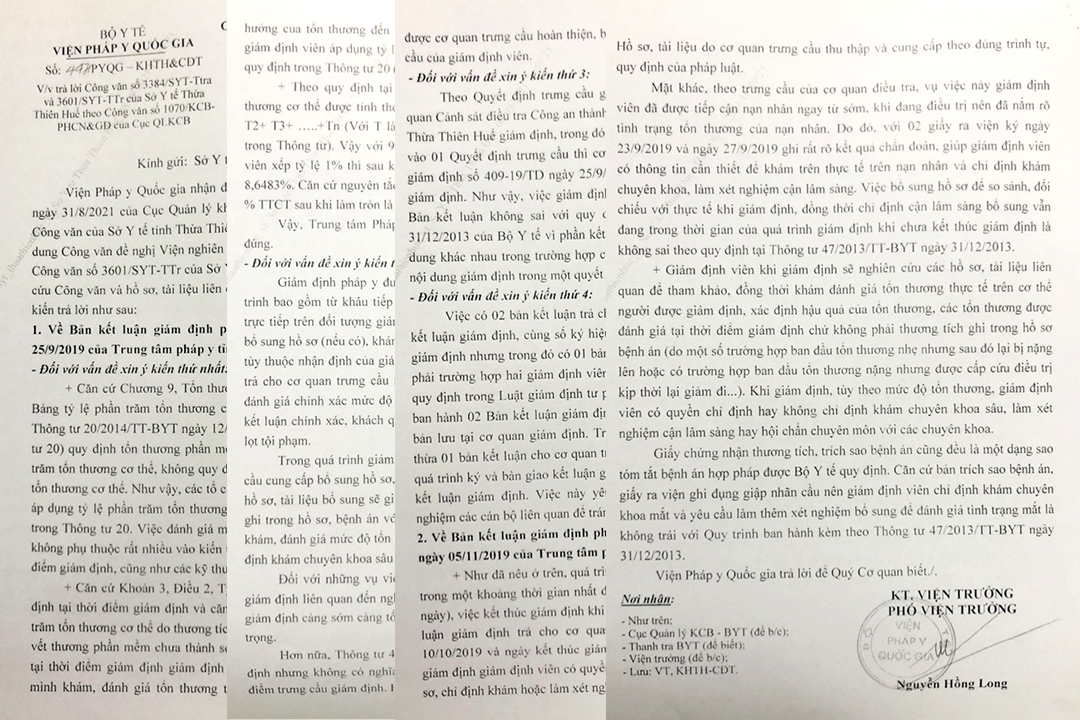 BỘ Y TẾ
VIỆN PHÁP Y QUỐC GIA
Số: 447/PYQG – KHTH&CDT
V/v trả lời Công văn số 3384/SYT-Ttra
và 3601/SYT-TTr của Sở Y tế Thừa
Thiên Huế theo Công văn số 1070/KCB-
PHCN&GĐ của Cục QLKCB
Kính gửi: Sở Y t
Viện Pháp y Quốc gia nhận đ
ngày 31/8/2021 của Cục Quản lý kh
Công văn của Sở Y tế tỉnh Thừa Thiên
dung Công văn đề nghị Viện nghiên
Công văn số 3601/SYT-TTr của Sở
cứu Công văn và hồ sơ, tài liệu liên
kiến trả lời như sau:
1. Về Bản kết luận giám định p
25/9/2019 của Trung tâm pháp y tỉ
- Đối với vấn đề xin ý kiến thứ nhất:
+ Căn cứ Chương 9, Tổn thư
Bảng tỷ lệ phần trăm tổn thương c
Thông tư 20/2014/TT-BYT ngày 12/
tư 20) quy định tổn thương phần m
trăm tổn thương cơ thể, không quy đ
tổn thương cơ thể. Như vậy, các tổ c
áp dụng tỷ lệ phần trăm tổn thương
trong Thông tư 20. Việc đánh giá m
không phụ thuộc rất nhiều vào kiến
điểm giám định, cũng như các kỹ thu
+ Căn cứ Khoản 3, Điều 2, T
định tại thời điểm giám định và căn
trăm tổn thương cơ thể do thương tíc
vết thương phần mềm chưa thành sẹ
tại thời điểm giám định giám định
mình khám, đánh giá tổn thương t
hưởng của tổn thương đến
giám định viên áp dụng tỷ l
quy định trong Thông tư 20
+ Theo quy định tại
thương cơ thể được tính the
T2+ T3+ …..+Tn (Với T là
trong Thông tư). Vậy với 9
viên xếp tỷ lệ 1% thì sau k
8,6483%. Căn cứ nguyên tắc
% TTCT sau khi làm tròn là
Vậy, Trung tâm Pháp
đúng.
- Đối với vấn đề xin ý kiến t
Giám định pháp y đư
trình bao gồm từ khâu tiếp
trực tiếp trên đối tượng giám
bổ sung hồ sơ (nếu có), khám
tùy thuộc nhận định của giá
trả cho cơ quan trưng cầu
đánh giá chính xác mức độ
kết luận chính xác, khách q
lọt tội phạm.
Trong quá trình giám
cầu cung cấp bổ sung hồ sơ,
hồ sơ, tài liệu bổ sung sẽ gi
ghi trong hồ sơ, bệnh án vớ
khám, đánh giá mức độ tổn
định khám chuyên khoa sâu
Đối với những vụ việ
giám định liên quan đến ngh
giám định càng sớm càng tố
trọng.
Hơn nữa, Thông tư 4
định nhưng không có nghĩa
điểm trưng cầu giám định.
được cơ quan trưng cầu hoàn thiện, b
cầu của giám định viên.
- Đối với vấn đề xin ý kiến thứ 3:
Theo Quyết định trưng cầu g
quan Cảnh sát điều tra Công an thành
Thừa Thiên Huế giám định, trong đó
vào 01 Quyết định trưng cầu thì cơ
giám định số 409-19/TD ngày 25/9/
giám định. Như vậy, việc giám định
Bản kết luận không sai với quy c
31/12/2013 của Bộ Y tế vì phần kết
dung khác nhau trong trường hợp c
nội dung giám định trong một quyết
- Đối với vấn đề xin ý kiến thứ 4:
Việc có 02 bản kết luận trả ch
kết luận giám định, cùng số ký hiệu
giám định nhưng trong đó có 01 bản
phải trường hợp hai giám định viên
định trong Luật giám định tư p
ban hành 02 Bản kết luận giám địn
bản lưu tại cơ quan giám định. Tr
thừa 01 bản kết luận cho cơ quan t
quá trình ký và bàn giao kết luận g
kết luận giám định. Việc này yê
nghiệm các cán bộ liên quan để trán
2. Về Bản kết luận giám định ph
ngày 05/11/2019 của Trung tâm p
+ Như đã nêu ở trên, quá trì
trong một khoảng thời gian nhất đ
ngày), việc kết thúc giám định khi
luận giám định trả cho cơ qua
10/10/2019 và ngày kết thúc giám
giám định giám định viên có quyề
sơ, chỉ định khám hoặc làm xét ng
Hồ sơ, tài liệu do cơ quan trưng cầu thu thập và cung cấp theo đúng trình tự,
quy định của pháp luật.
Mặt khác, theo trưng cầu của cơ quan điều tra, vụ việc này giám định
viên đã được tiếp cận nạn nhân ngay từ sớm, khi đang điều trị nên đã nắm rõ
tình trạng tổn thương của nạn nhân. Do đó, với 02 giấy ra viện ký ngày
23/9/2019 và ngày 27/9/2019 ghi rất rõ kết quả chẩn đoán, giúp giám định viên
có thông tin cần thiết để khám trên thực tế trên nạn nhân và chỉ định khám
chuyên khoa, làm xét nghiệm cận lâm sàng. Việc bổ sung hồ sơ để so sánh, đối
chiếu với thực tế khi giám định, đồng thời chỉ định cận lâm sàng bổ sung vẫn
đang trong thời gian của quá trình giám định khi chưa kết thúc giám định là
không sai theo quy định tại Thông tư 47/2013/TT-BYT ngày 31/12/2013.
+ Giám định viên khi giám định sẽ nghiên cứu các hồ sơ, tài liệu liên
quan để tham khảo, đồng thời khám đánh giá tổn thương thực tế trên cơ thể
người được giám định, xác định hậu quả của tổn thương, các tổn thương được
đánh giá tại thời điểm giám định chứ không phải thương tích ghi trong hồ sơ
bệnh án (do một số trường hợp ban đầu tổn thương nhẹ nhưng sau đó lại bị nặng
lên hoặc có trường hợp ban đầu tổn thương nặng nhưng được cấp cứu điều trị
kịp thời lại giảm đi...). Khi giám định, tùy theo mức độ tổn thương, giám định
viên có quyền chỉ định hay không chỉ định khám chuyên khoa sâu, làm xét
nghiệm cận lâm sàng hay hội chẩn chuyên môn với các chuyên khoa.
Giấy chứng nhận thương tích, trích sao bệnh án cũng đều là một dạng sao
tóm tắt bệnh án hợp pháp được Bộ Y tế quy định. Căn cứ bản trích sao bệnh án,
giấy ra viện ghi đụng giập nhãn cầu nên giám định viên chỉ định khám chuyên
khoa mắt và yêu cầu làm thêm xét nghiệm bổ sung để đánh giá tình trạng mắt là
không trái với Quy trình ban hành kèm theo Thông tư 47/2013/TT-BYT ngày
31/12/2013.
Viện Pháp y Quốc gia trả lời để Quý Cơ quan biết./.
Nơi nhận:
- Như trên;
- Cục Quản lý KCB - BYT (để b/c);
- Thanh tra BYT (để biết);
- Viện trưởng (để b/c);
- Lưu: VT, KHTH-CDT.
KT. VIỆN TRƯỞNG
PHÓ VIỆN TRƯỞNG
VIỆN
PHÁP Y
QUỐC GIA
Nguyễn Hồng Long